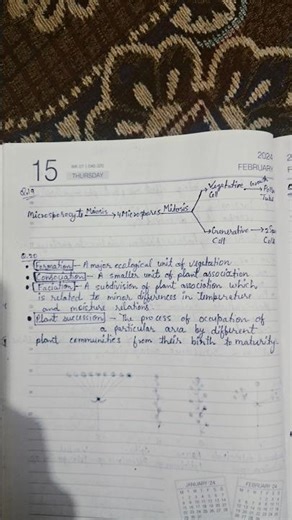 15
THURSDAY
2024
FEBRUARY
Vegetative Growth
Cell Tube
Microsporocyte Meiosis Microspores Mitosis
Generative
Cell
Formation - A major ecological unit of vegetation
Consociation - A smaller unit of plant association
Faciation - A subdivision of plant association which
is related to minor differences in temperature
and moisture relations.
Plant succession - The process of occupation of
a particular area by different
plant communities from their birth to maturity.
JANUARY 24
FEBRUARY 24